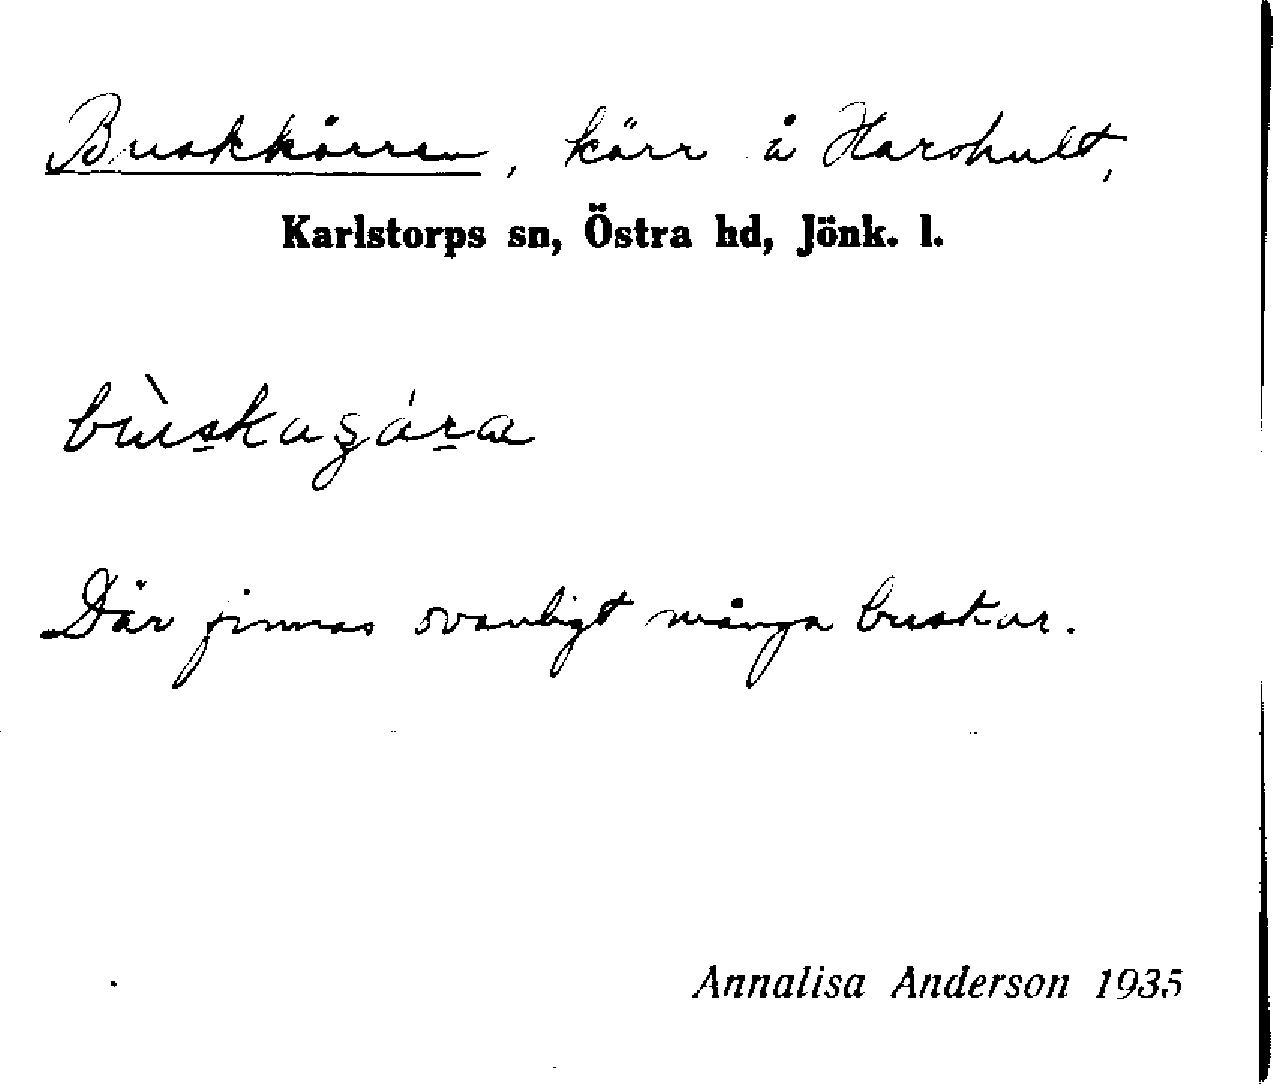 Buskkärren, kärr å Harshult,
Karlstorps sn, Östra hd, Jönk. l.
Där finnas ovanligt många buskar.
Annalisa Anderson 1935